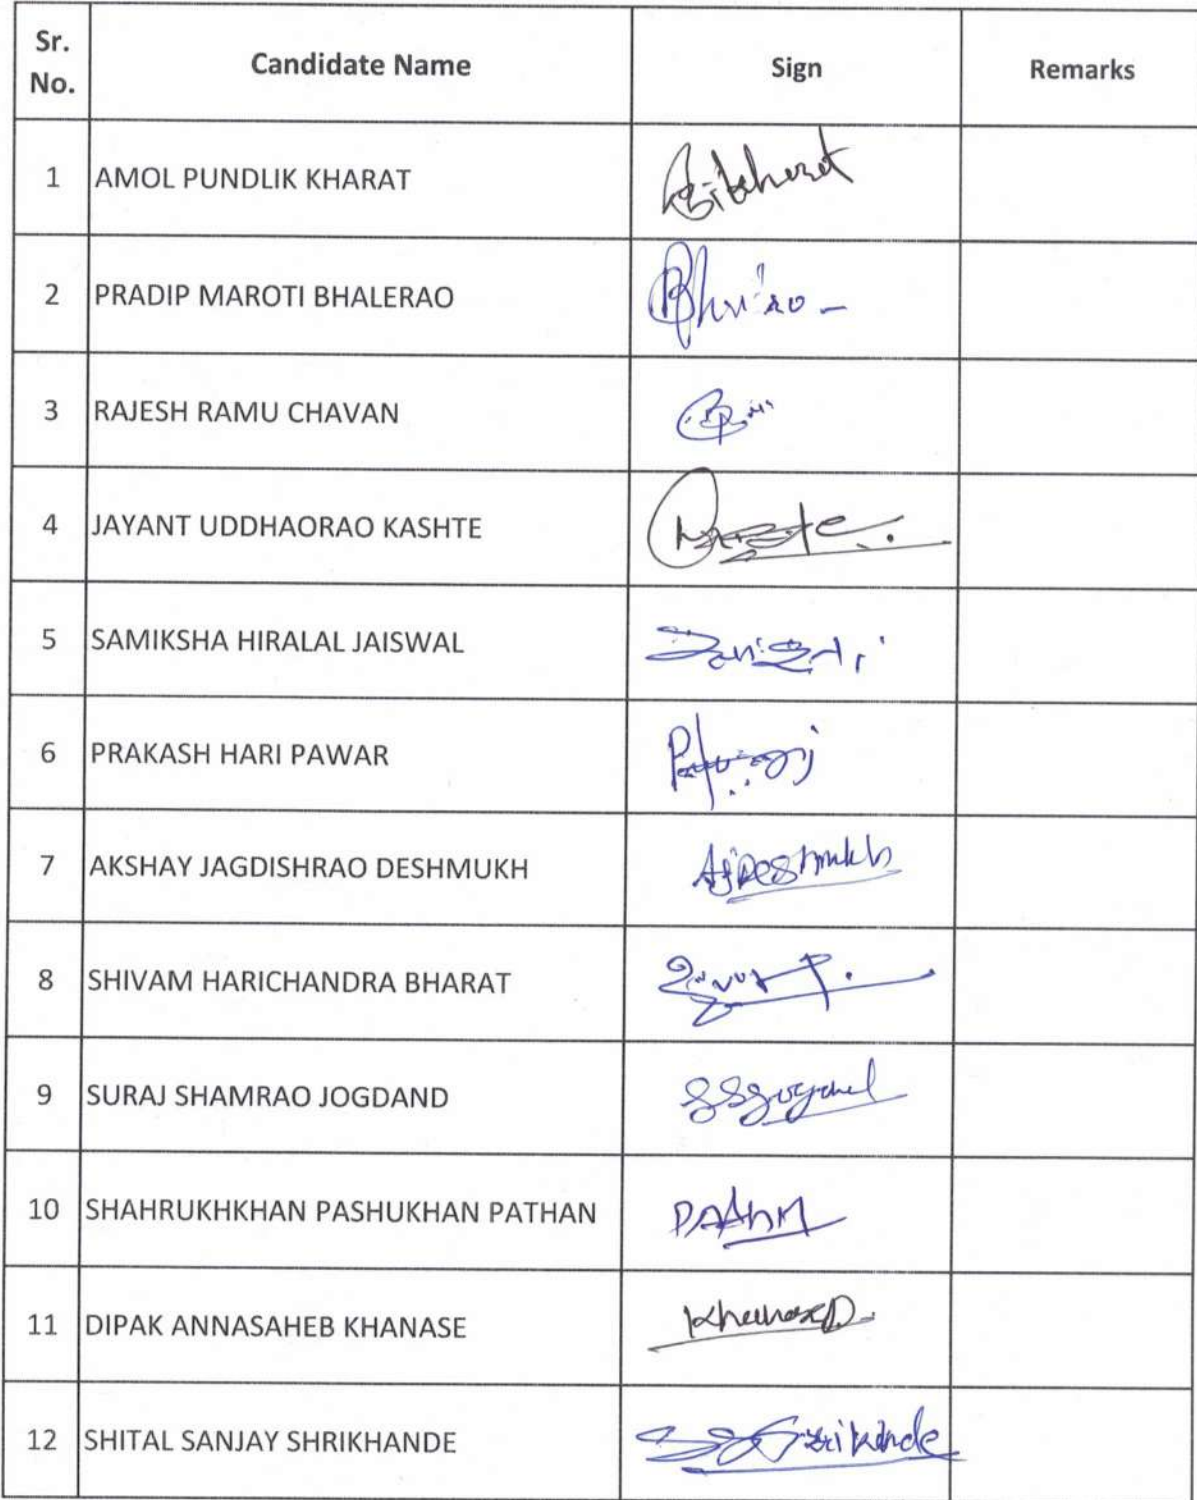 Sr. No. Candidate Name Sign Remarks
1 AMOL PUNDLIK KHARAT
2 PRADIP MAROTI BHALERAO
3 RAJESH RAMU CHAVAN
4 JAYANT UDDHAORAO KASHTE
5 SAMIKSHA HIRALAL JAISWAL
6 PRAKASH HARI PAWAR
7 AKSHAY JAGDISHRAO DESHMUKH AJDeshmukh
8 SHIVAM HARICHANDRA BHARAT
9 SURAJ SHAMRAO JOGDAND
10 SHAHRUKHKHAN PASHUKHAN PATHAN
11 DIPAK ANNASAHEB KHANASE
12 SHITAL SANJAY SHRIKHANDE